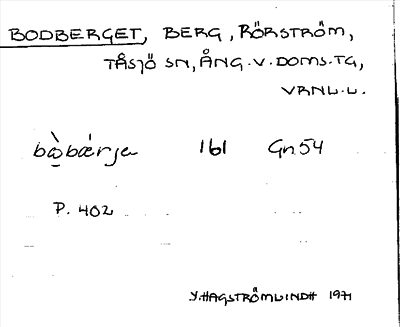 BODBERGET, BERG, RÖRSTRÖM,
TÅSJÖ SN, ÅNG. V. DOMS. TG,
VRNL. L.
bàbǽrjɐ 161 Gn 54
P. 402
Y. HAGSTRÖMLINDH 1971